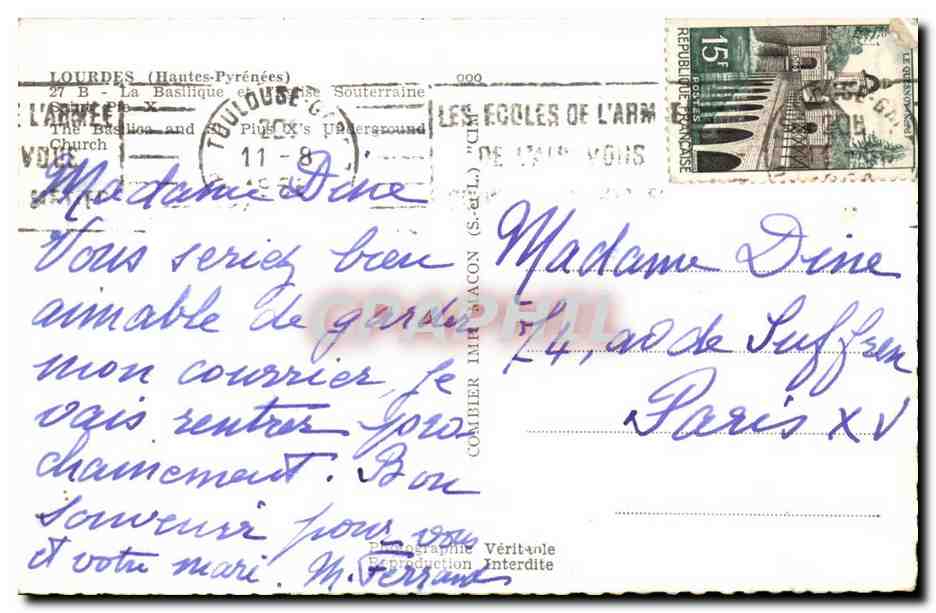 LOURDES (Hautes-Pyrénées)
27 B - La Basilique et Souterraine
The Basilica and Pius X's Underground
Church
L'ARMÉE
VOUS
TOULOUSE-G
11-8
LES ECOLES DE L'ARM
DE L'AIR VOUS
15F
RÉPUBLIQUE FRANÇAISE
POSTES
LE QUESNOY
Madame Dine
Vous seriez bien
aimable de garder
mon courrier, je
vais rentrer pro
chainement. Bon
souvenir pour vous
et votre mari. M. Ferrand
COMBIER IMP. MACON (S.-et-L.) "CIM"
Madame Dine
74, av de Suffren
Paris XV
GRAPHIL
Photographie Véritable
Reproduction Interdite